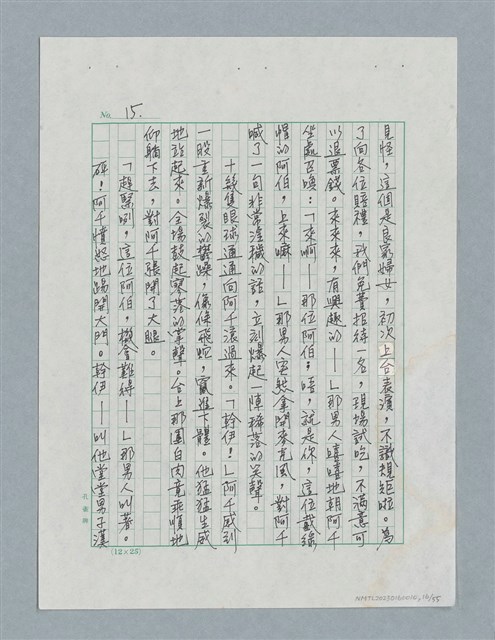 No. 15.
見怪，這個是良家婦女，初次上台表演，不識規矩啦。為
了向各位賠禮，我們免費招待一名，現場試吃，不滿意可
以退票錢。來來來，有興趣的——」那男人嘻嘻地朝阿千
坐處召喚：「來啊——那位阿伯，唔，就是你，這位戴綠
帽的阿伯，上來嘛——」那男人突然拿開麥克風，對阿千
喊了一句非常淫穢的話，立刻爆起一陣稀落的笑聲。
十幾隻眼球通通向阿千滾過來。「幹伊！」阿千感到
一股重新爆裂的
，像條飛蛇，竄進
體。他猛猛生威
地站起來。全場鼓起零落的掌聲。台上那團白肉竟乖順地
仰躺下去，對阿千張開了大腿。
「趕緊啊，這位阿伯，機會難得——」那男人叫著。
砰！阿千憤怒地踢開大門。幹伊——叫他堂堂男子漢
(12×25)